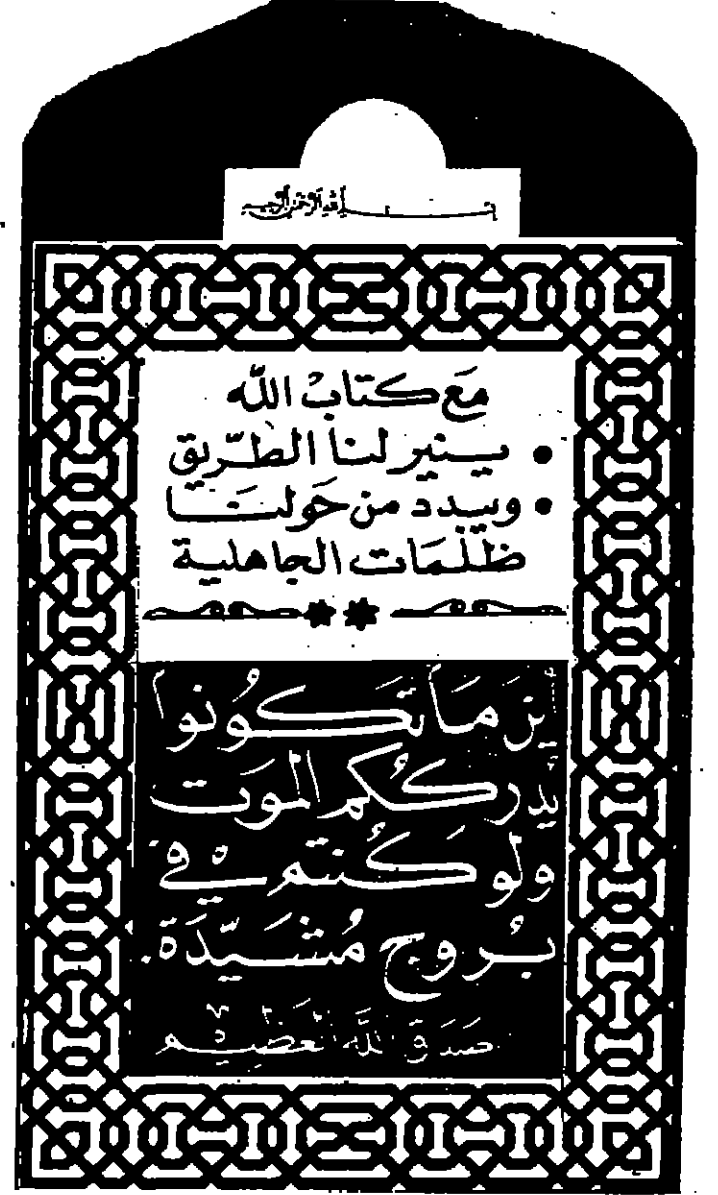 بسم الله الرحمن الرحيم
مَع كتابْ اللّه
• يـنير لنا الطّريق
• ويبدد من حَولنَا
ظلمَات الجاهلية
أينَ مَا تكُونوا
يُدرككُم الموَت
ولو كُنتم في
بُروج مُشَيّدَة.
صَدق اللَّه العَظيم